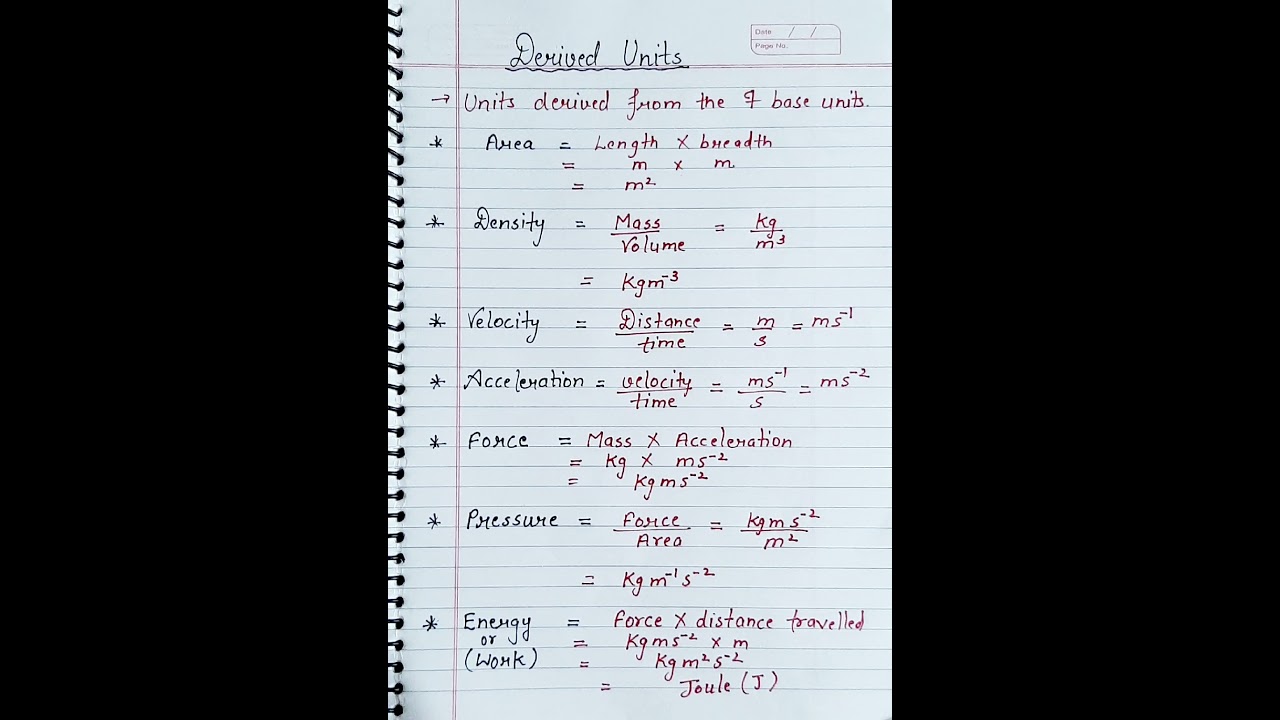 Date / /
Page No.
Derived Units
→ Units derived from the 7 base units.
* Area = Length × breadth
= m × m
= m²
* Density = Mass/Volume = Kg/m³
= Kgm⁻³
* Velocity = Distance/time = m/s = ms⁻¹
* Acceleration = velocity/time = ms⁻¹/s = ms⁻²
* Force = Mass × Acceleration
= Kg × ms⁻²
= Kgms⁻²
* Pressure = Force/Area = Kgms⁻²/m²
= Kgm⁻¹s⁻²
* Energy = Force × distance travelled
or = Kgms⁻² × m
(Work) = Kgm²s⁻²
= Joule (J)